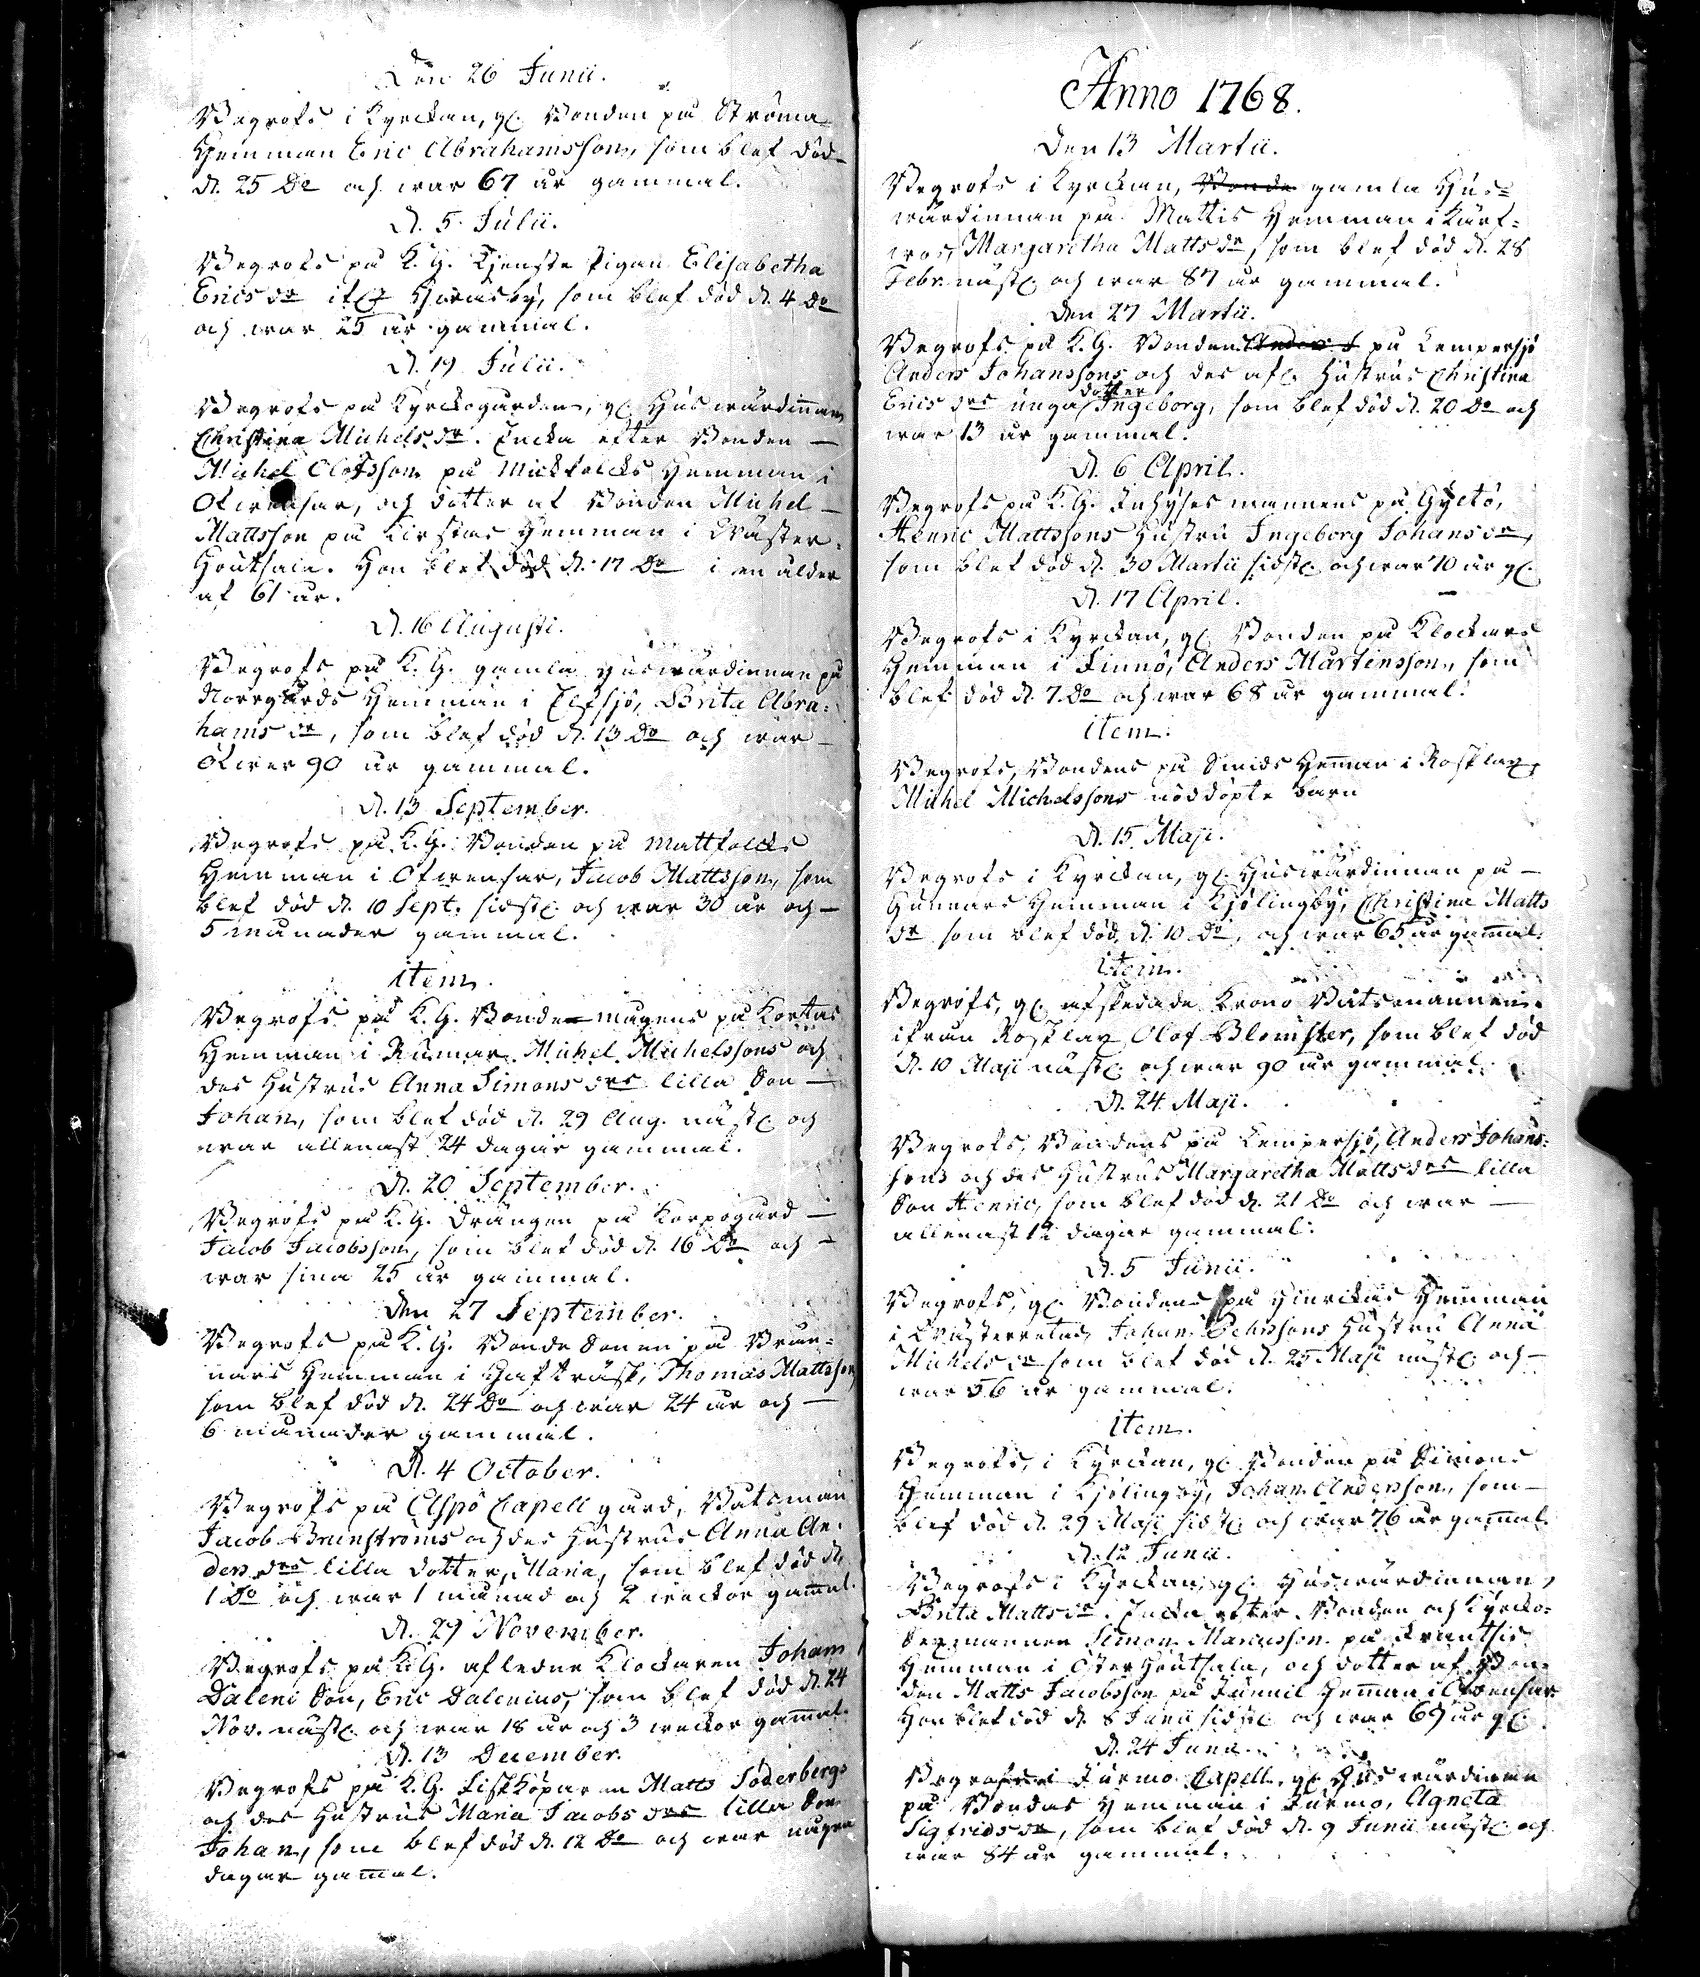 Den 26 Junii.
Begrofs i Kyrckan, gl. Bonden på Ströma
Hemman Eric Abrahamsson, som blef död
d. 25 Do och war 67 år gammal.
d. 5. Julii.
Begrofs på K. G. Tjenste pigan Elisabetha
Erics dr Hwasby, som blef död d. 4 Do
och war 25 år gammal.
d. 19 Julii.
Begrofs på Kyrckogården, gl. Huswärdinnan
Christina Michels dr. Encka efter Bonden
Michel Olofsson på Mickfolcks Hemman i
Ofwensar, och dotter af Bonden Michel
Mattsson på Kirstas Hemman i Wäster-
Houtsala. Hon blef död d. 17 Do i en ålder
af 61 år.
d. 16 Augusti.
Begrofs på K. G. gamla Huswärdinnan på
Norrgårds Hemman i Elfsjö, Brita Abra-
hams dr, som blef död d. 13 Do och war
öfwer 90 år gammal.
d. 13 September.
Begrofs på K. G. Bonden på Mattfolcks
Hemman i Ofwensar, Jacob Mattsson, som
blef död d. 10 Sept. sidstl. och war 30 år och
5 månader gammal.
item.
Begrofs på K. G. Bonde-mågens på Kortas
Hemman i Rumar Michel Michelssons och
des Hustrus Anna Simons drs lilla Son
Johan, som blef död d. 29 Aug. nästl. och
war allenast 24 dagar gammal.
d. 20 September.
Begrofs på K. G. Drängen på Korpogård
Jacob Jacobsson, som blef död d. 16 Do och
war sina 25 år gammal.
Den 27 September.
Begrofs på K. G. Bonde Sonen på Brun-
nars Hemman i Hafträsk, Thomas Mattsson
som blef död d. 24 Do och war 24 år och
6 månader gammal.
d. 4 October.
Begrofs på Aspö Capell gård, Båtsman
Jacob Brunströms och des Hustrus Anna An-
ders drs lilla dotter, Maria, som blef död d.
1 Do och war 1 månad och 2 weckor gamal.
d. 29 November.
Begrofs på K. G. afledne Klockaren Johan
Daleni Son, Eric Dalenius, som blef död d. 24
Nov. nästl. och war 18 år och 3 weckor gamal.
d. 13 December.
Begrofs på K. G. Fiskköparen Matts Söderbergs
och des Hustrus Maria Jacobs drs lilla Son
Johan, som blef död d. 12 Do och war några
dagar gamal.
Anno 1768.
Den 13 Martii.
Begrofs i Kyrckan, Bonde gamla Hus-
wärdinnan på Mattis Hemman i Kärf-
wos, Margaretha Matts dr, som blef död d. 28
Febr. nästl. och war 87 år gammal.
Den 27 Martii.
Begrofs på K. G. Bonden Anders J på Lempersjö
Anders Johanssons och des afl. Hustrus Christina
Erics drs unga dotter Ingeborg, som blef död d. 20 Do och
war 13 år gammal.
d. 6 April.
Begrofs på K. G. Inhyses mannens på Gyltö,
Henric Mattssons Hustru Ingeborg Johans dr,
som blef död d. 30 Martii sidstl. och war 70 år gl.
d. 17 April.
Begrofs i Kyrckan, gl. Bonden på Klockars
Hemman i Finnö, Anders Mårtensson, som
blef död d. 7. Do och war 68 år gammal.
item.
Begrofs, Bondens på Smids Heman i Rosklax,
Michel Michelssons nöddöpte barn
d. 15 Maji.
Begrofs i Kyrckan, gl. Huswärdinnan på
Gunnars Hemman i Kjölingby, Christina Matts
dr som blef död d. 10 Do, och war 65 år gamal.
item.
Begrofs, gl. afskedade Krono Båtsmannen
ifrån Rosklax Olof Blomster, som blef död
d. 10 Maji nästl. och war 90 år gammal.
d. 24 Maji.
Begrofs, Bondens på Lempersjö, Anders Johans-
sons och des Hustrus Margaretha Matts drs lilla
Son Henric, som blef död d. 21 Do och war
allenast 12 dagar gammal.
d. 5 Junii.
Begrofs, gl. Bondens på Hinrickas Hemman
i Wästerretais Johan Hustru Anna
Michels dr som blef död d. 25 Maji nästl. och
war 56 år gammal.
item.
Begrofs, i Kyrckan, gl. Bonden på Simons
Hemman i Kjölingby, Johan Andersson, som
blef död d. 29 Maji sidstl. och war 76 år gamal.
d. 12 Junii.
Begrofs i Kyrckan, gl. Huswärdinnan,
Brita Matts dr. Encka efter Bonden och Kyrcko-
Sexmannen Simon Marcusson på Frantsis
Hemman i Österhoutsala, och dotter af Bon-
den Matts Jacobsson på Junnil Heman i Ofwensar.
Hon blef död d. 8 Junii sidstl. och war 69 år gl.
d. 24 Junii.
Begrofs i Jurmo Capell, gl. Huswärdinnan
på Bondas Hemman i Jurmo, Agneta
Sigfrids dr, som blef död d. 9 Junii nästl. och
war 84 år gammal.